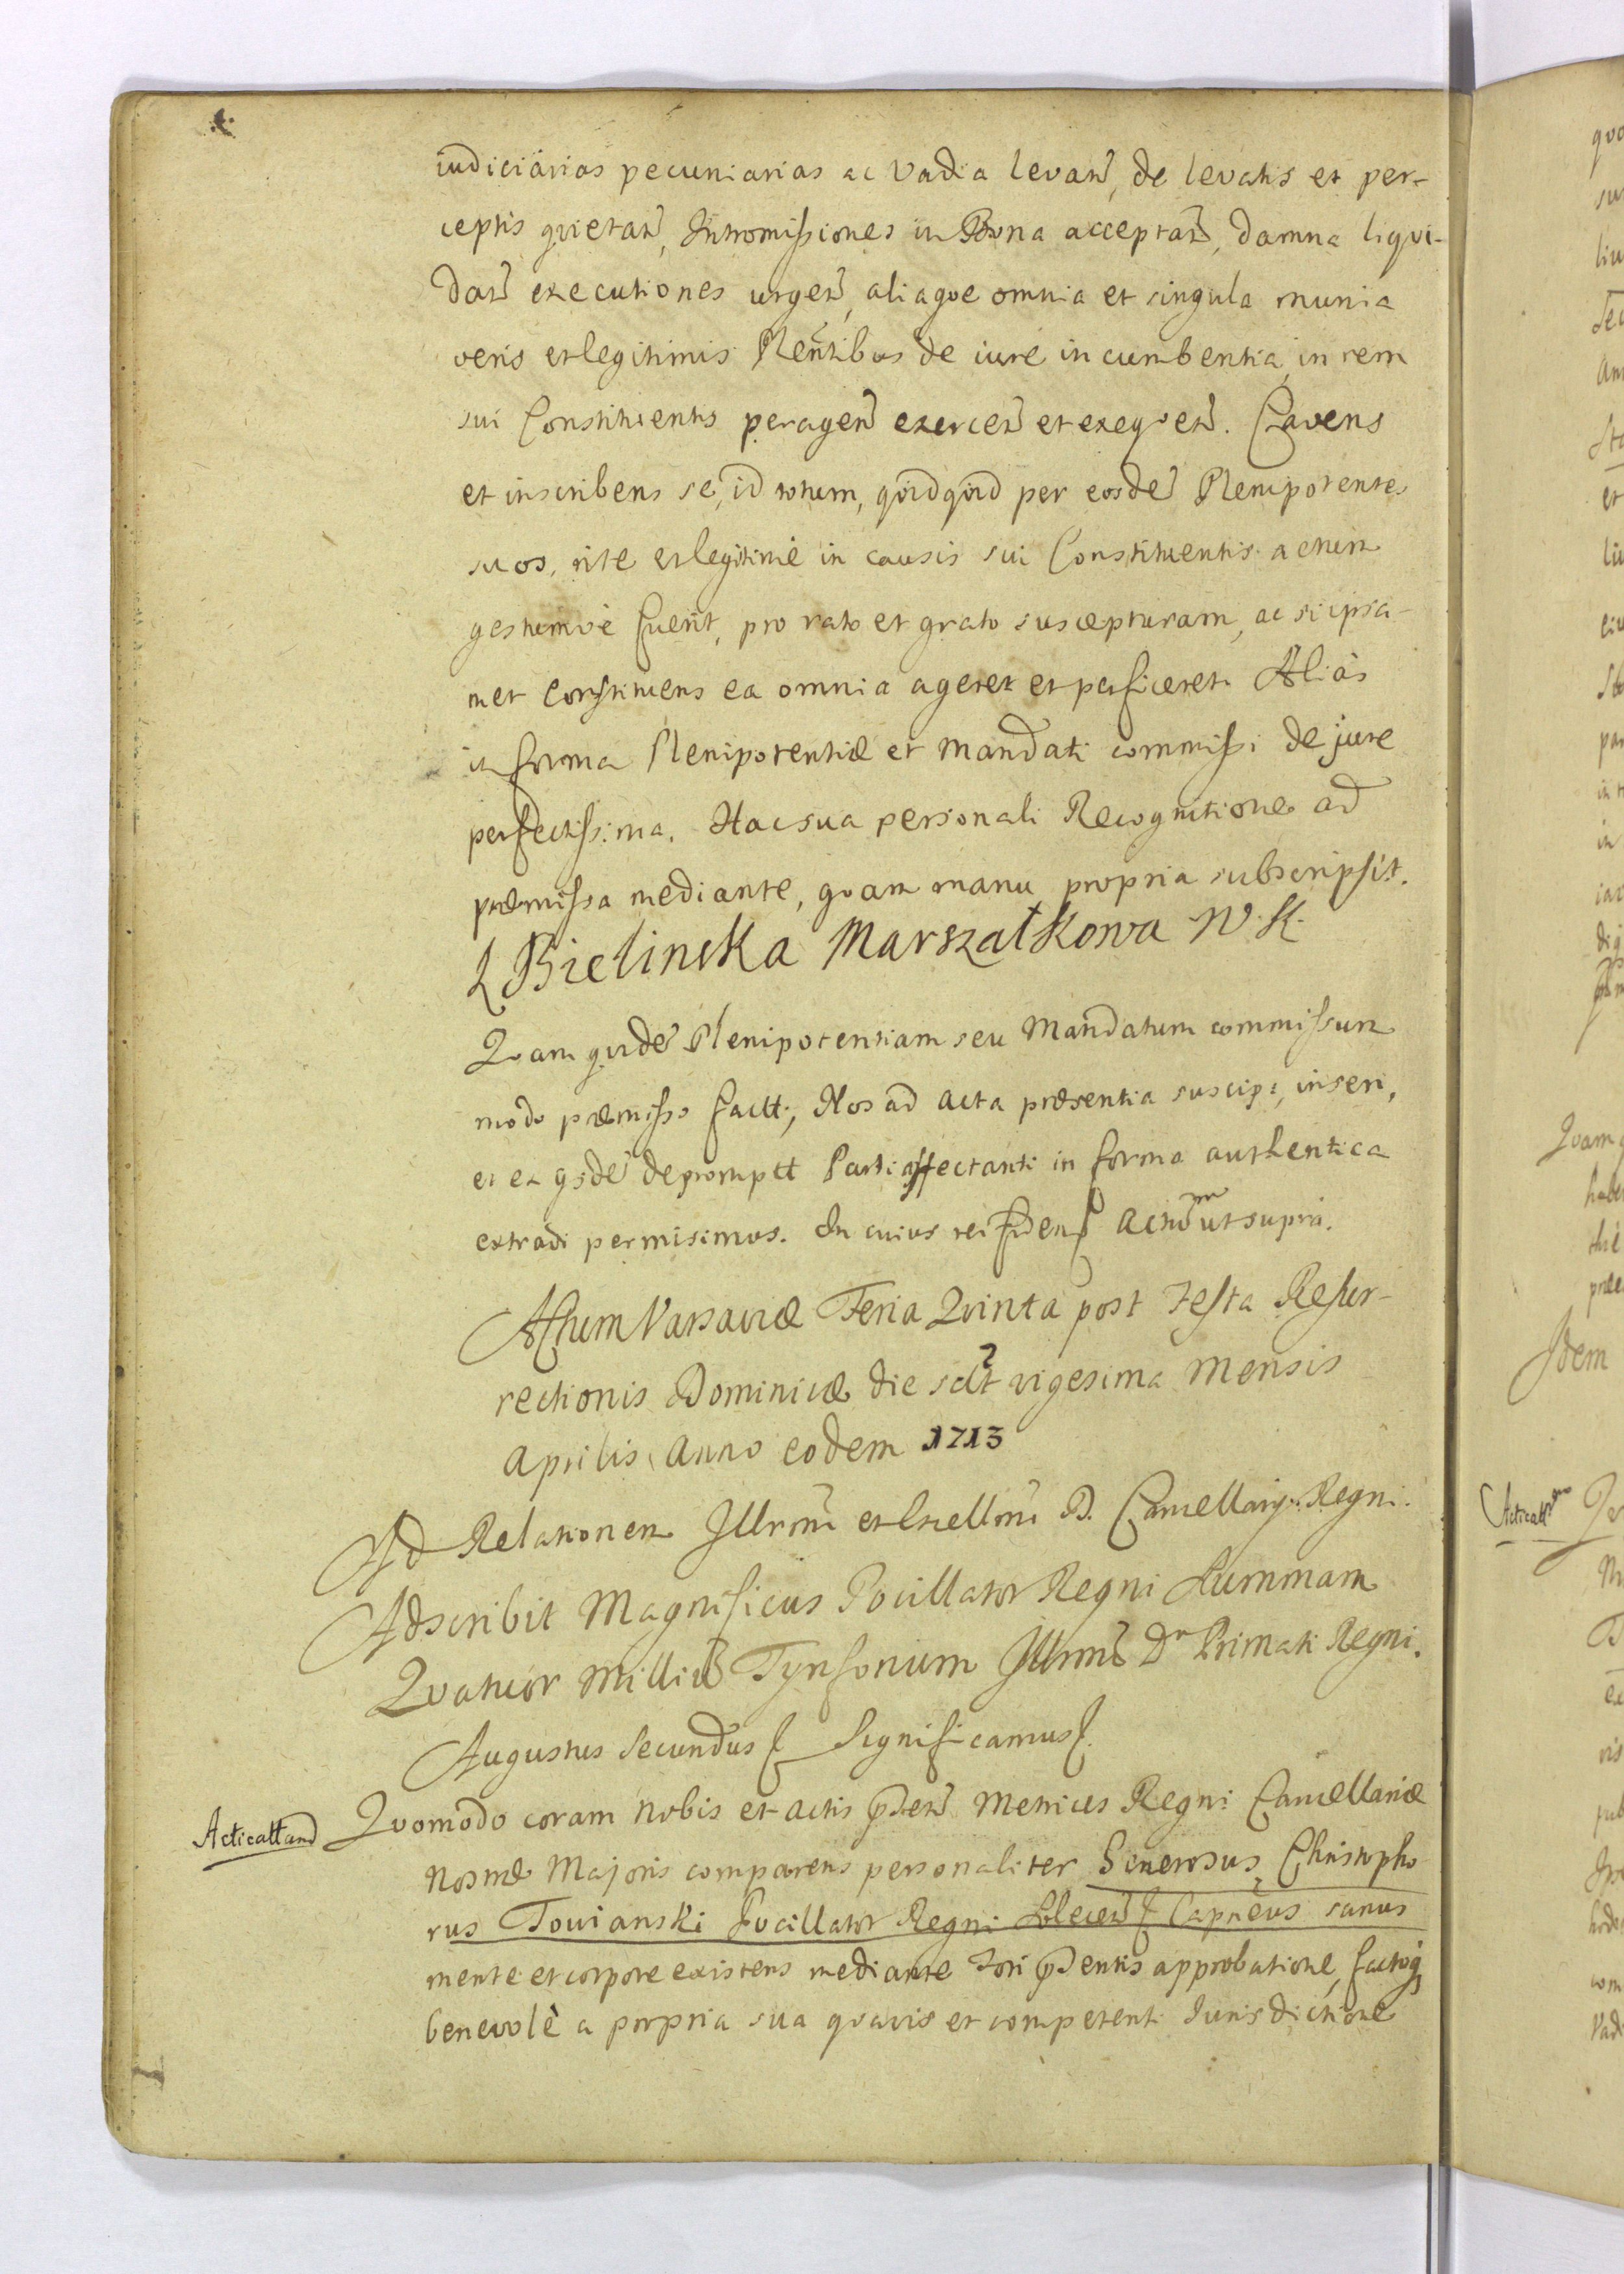 iudiciarias pecuniarias ac Vadia levan͠d, de levatis et per-
ceptis qvietan͠d, Intromissiones in Bona acceptan͠d, damna liqvi-
dan͠d executiones urgen͠d, aliaqve omnia et singula munia
veris et legitimis Plen͠tibus de iure incumbentia, in rem
sui Constituentis peragen͠d exercen͠d et exeqven͠d. Cavens
et inscribens se, id totum, qvidqvid per eosde͠ Plenipotentes
suos, rite et legitimè in causis sui Constituentis actum
gestumvè fuerit, pro rato et grato suscepturam, ac si ipsa-
met constituens ea omnia ageret et perficeret. Aliàs
in forma Plenipotentiæ et mandati commissi de jure
perfectissima. Hac sua personali Recognitione ad
præmissa mediante, qvam manu propria subscripsit.
L Bielinska Marszałkowa W. K.
Qvam qvide͠ Plenipotentiam seu Mandatum commissum
modo præmisso factt, Nos ad acta præsentia suscipi, inseri,
et ex ijsde͠ depromptt Parti affectanti in forma authentica
extradi permisimus. In cuius rei fidem Actum ut supra.
Actum Varsaviæ Feria Qvinta post Festa Resur-
rectionis Dominicæ die scil͠t vigesima Mensis
Aprilis Anno eodem 1713
Ad Relationem Illrmi et Excellmi D. Cancellarij Regni.
Adscribit Magnificus Pocillator Regni Summam
Qvatuor Milliu͠ Tynfonum Illrmo Dno Primati Regni.
Augustus Secundus Significamus
Acticatt and
Qvomodo coram Nobis et Actis p͠den͠d Metrices Regni Cancellariæ
Nostræ Majoris comparens personaliter Generosus Christopho-
rus Towianski Pocillator Regni Capneus sanus
mente et corpore existens mediante Fori p͠dentis approbatione, factoq
benevolè a propria sua qvavis et competenti Iurisdictione